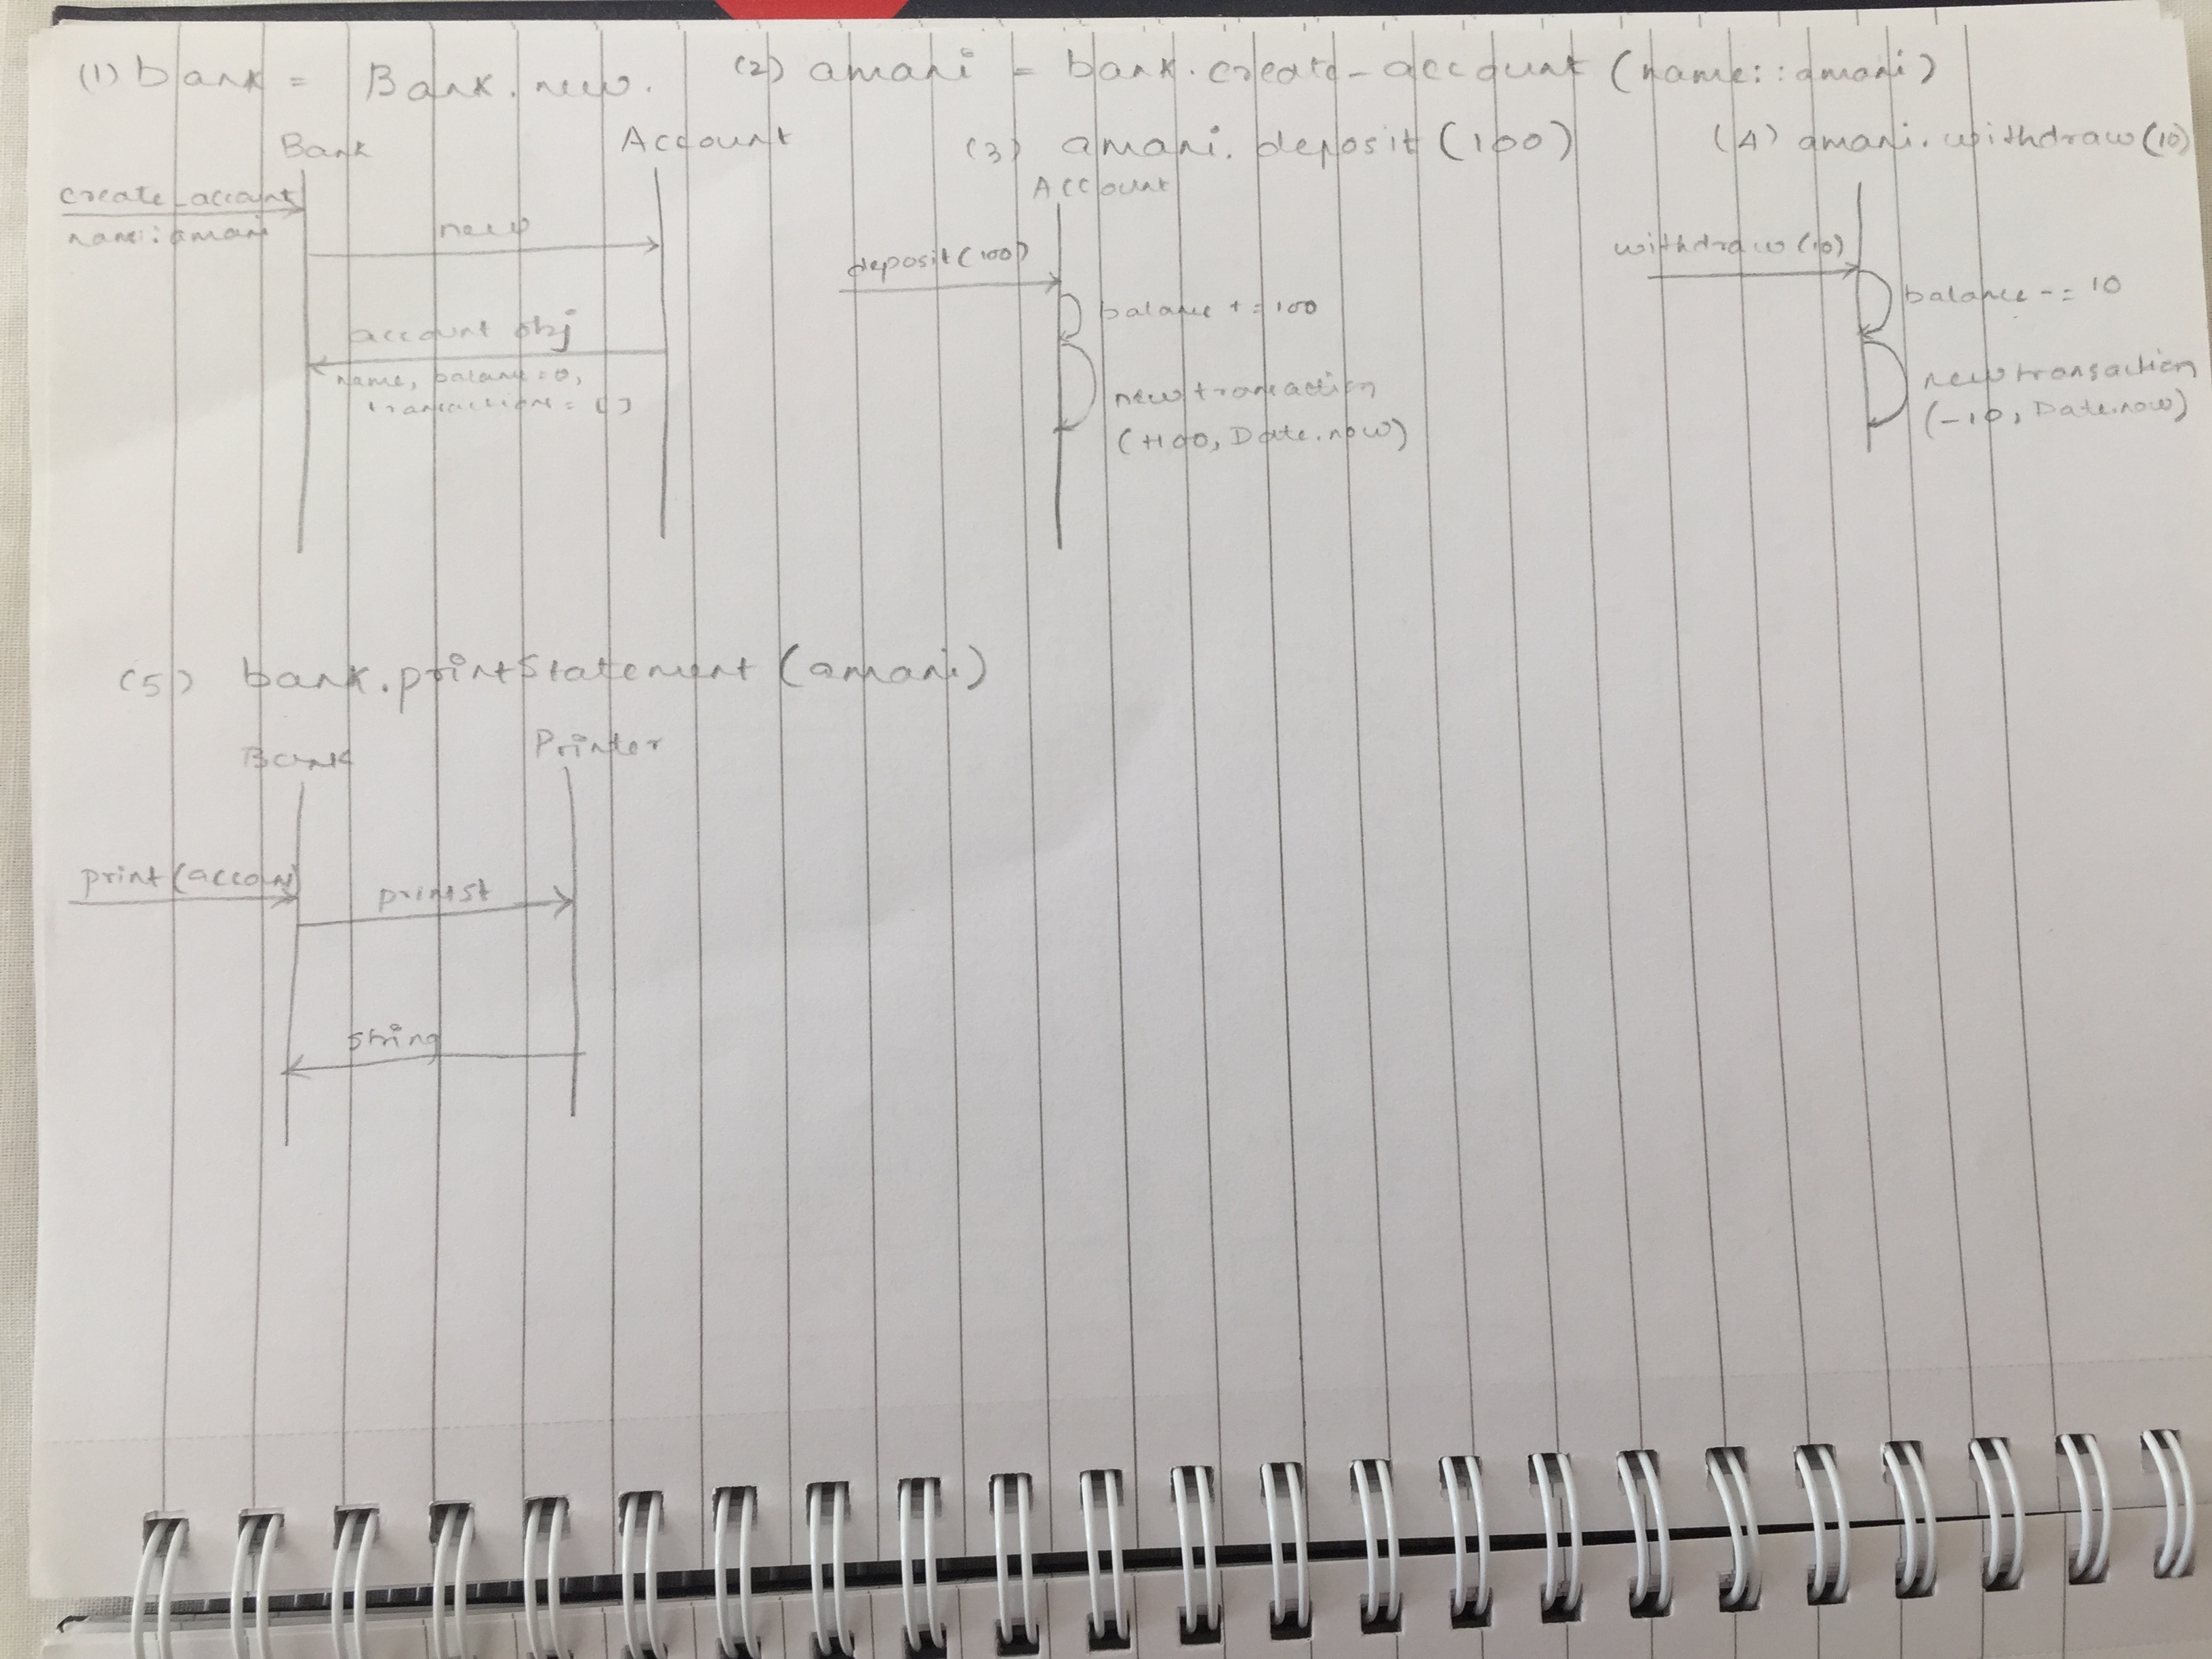 (1) bank = Bank.new.
(2) amani = bank.create_account (name::amani)
Bank
Account
create_account
name::amani
new
account obj
name, balance=0,
transactions=[]
(3) amani.deposit(100)
Account
deposit(100)
balance += 100
new transaction
(+100, Date.now)
(4) amani.withdraw(10)
withdraw(10)
balance -= 10
new transaction
(-10, Date.now)
(5) bank.printStatement(amani)
Bank
Printer
print(account)
printst
string